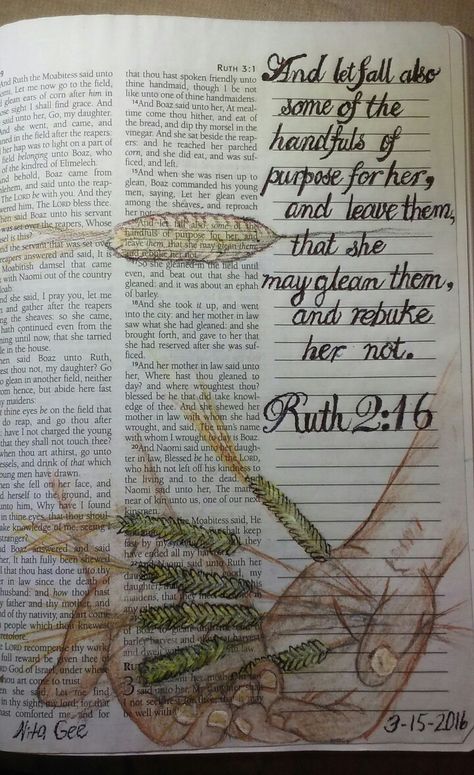 RUTH 3:1
9
And Ruth the Moabitess said unto
Let me now go to the field,
glean ears of corn after him in
sight I shall find grace. And
said unto her, Go, my daughter.
And she went, and came, and
in the field after the reapers:
her hap was to light on a part of
field belonging unto Boaz, who
of the kindred of Elimelech:
And behold, Boaz came from
and said unto the
The LORD be with you. And they
The LORD bless thee.
said Boaz unto his servant
was set over the reapers, Whose
is this?
the servant that was set over
reapers answered and said, It is
Moabitish damsel that came
with Naomi out of the country
she said, I pray you, let me
and gather after the reapers
the sheaves: so she came,
hath continued even from the
until now, that she tarried
in the house.
said Boaz unto Ruth,
thou not, my daughter? Go
to glean in another field, neither
from hence, but abide here fast
my maidens:
thine eyes be on the field that
do reap, and go thou after
have I not charged the young
that they shall not touch thee?
when thou art athirst, go unto
and drink of that which
young men have drawn.
she fell on her face, and
herself to the ground, and
unto him, Why have I found
in thine eyes, that thou
take knowledge of me, seeing I
stranger?
Boaz answered and said
It hath fully been shewed
that thou hast done unto thy
in law since the death
husband: and how thou hast
father and thy mother, and
of thy nativity, and art come
people which thou
LORD recompense thy work,
full reward be given thee
GOD of Israel, under whose
art come to trust.
she said, Let me find
in thy sight, my lord; for that
comforted me, and for
that thou hast spoken friendly unto
thine handmaid, though I be not
like unto one of thine handmaidens.
14 And Boaz said unto her, At meal-
time come thou hither, and eat of
the bread, and dip thy morsel in the
vinegar. And she sat beside the reap-
ers: and he reached her parched
corn, and she did eat, and was suf-
ficed, and left.
15 And when she was risen up to
glean, Boaz commanded his young
men, saying, Let her glean even
among the sheaves, and reproach
her not:
And let fall also some of the
handfuls of purpose for her, and
leave them, that she may glean them,
and rebuke her not.
So she gleaned in the field until
even, and beat out that she had
gleaned: and it was about an ephah
of barley.
18 And she took it up, and went
into the city: and her mother in law
saw what she had gleaned: and she
brought forth, and gave to her that
she had reserved after she was suf-
ficed.
19 And her mother in law said unto
her, Where hast thou gleaned to
day? and where wroughtest thou?
blessed be he that did take knowl-
edge of thee. And she shewed her
mother in law with whom she had
wrought, and said, The man's name
with whom I wrought to day is Boaz.
20 And Naomi said unto her daugh-
ter in law, Blessed be he of the LORD,
who hath not left off his kindness to
the living and to the dead. And
Naomi said unto her, The man is
near of kin unto us, one of our next
kinsmen.
Moabitess said, He
said unto her, My daughter, shall
I not seek rest for thee, that it may
be well with
And let fall also
some of the
handfuls of
purpose for her,
and leave them,
that she
may glean them,
and rebuke
her not.
Ruth 2:16
Nita Gee
3-15-2016